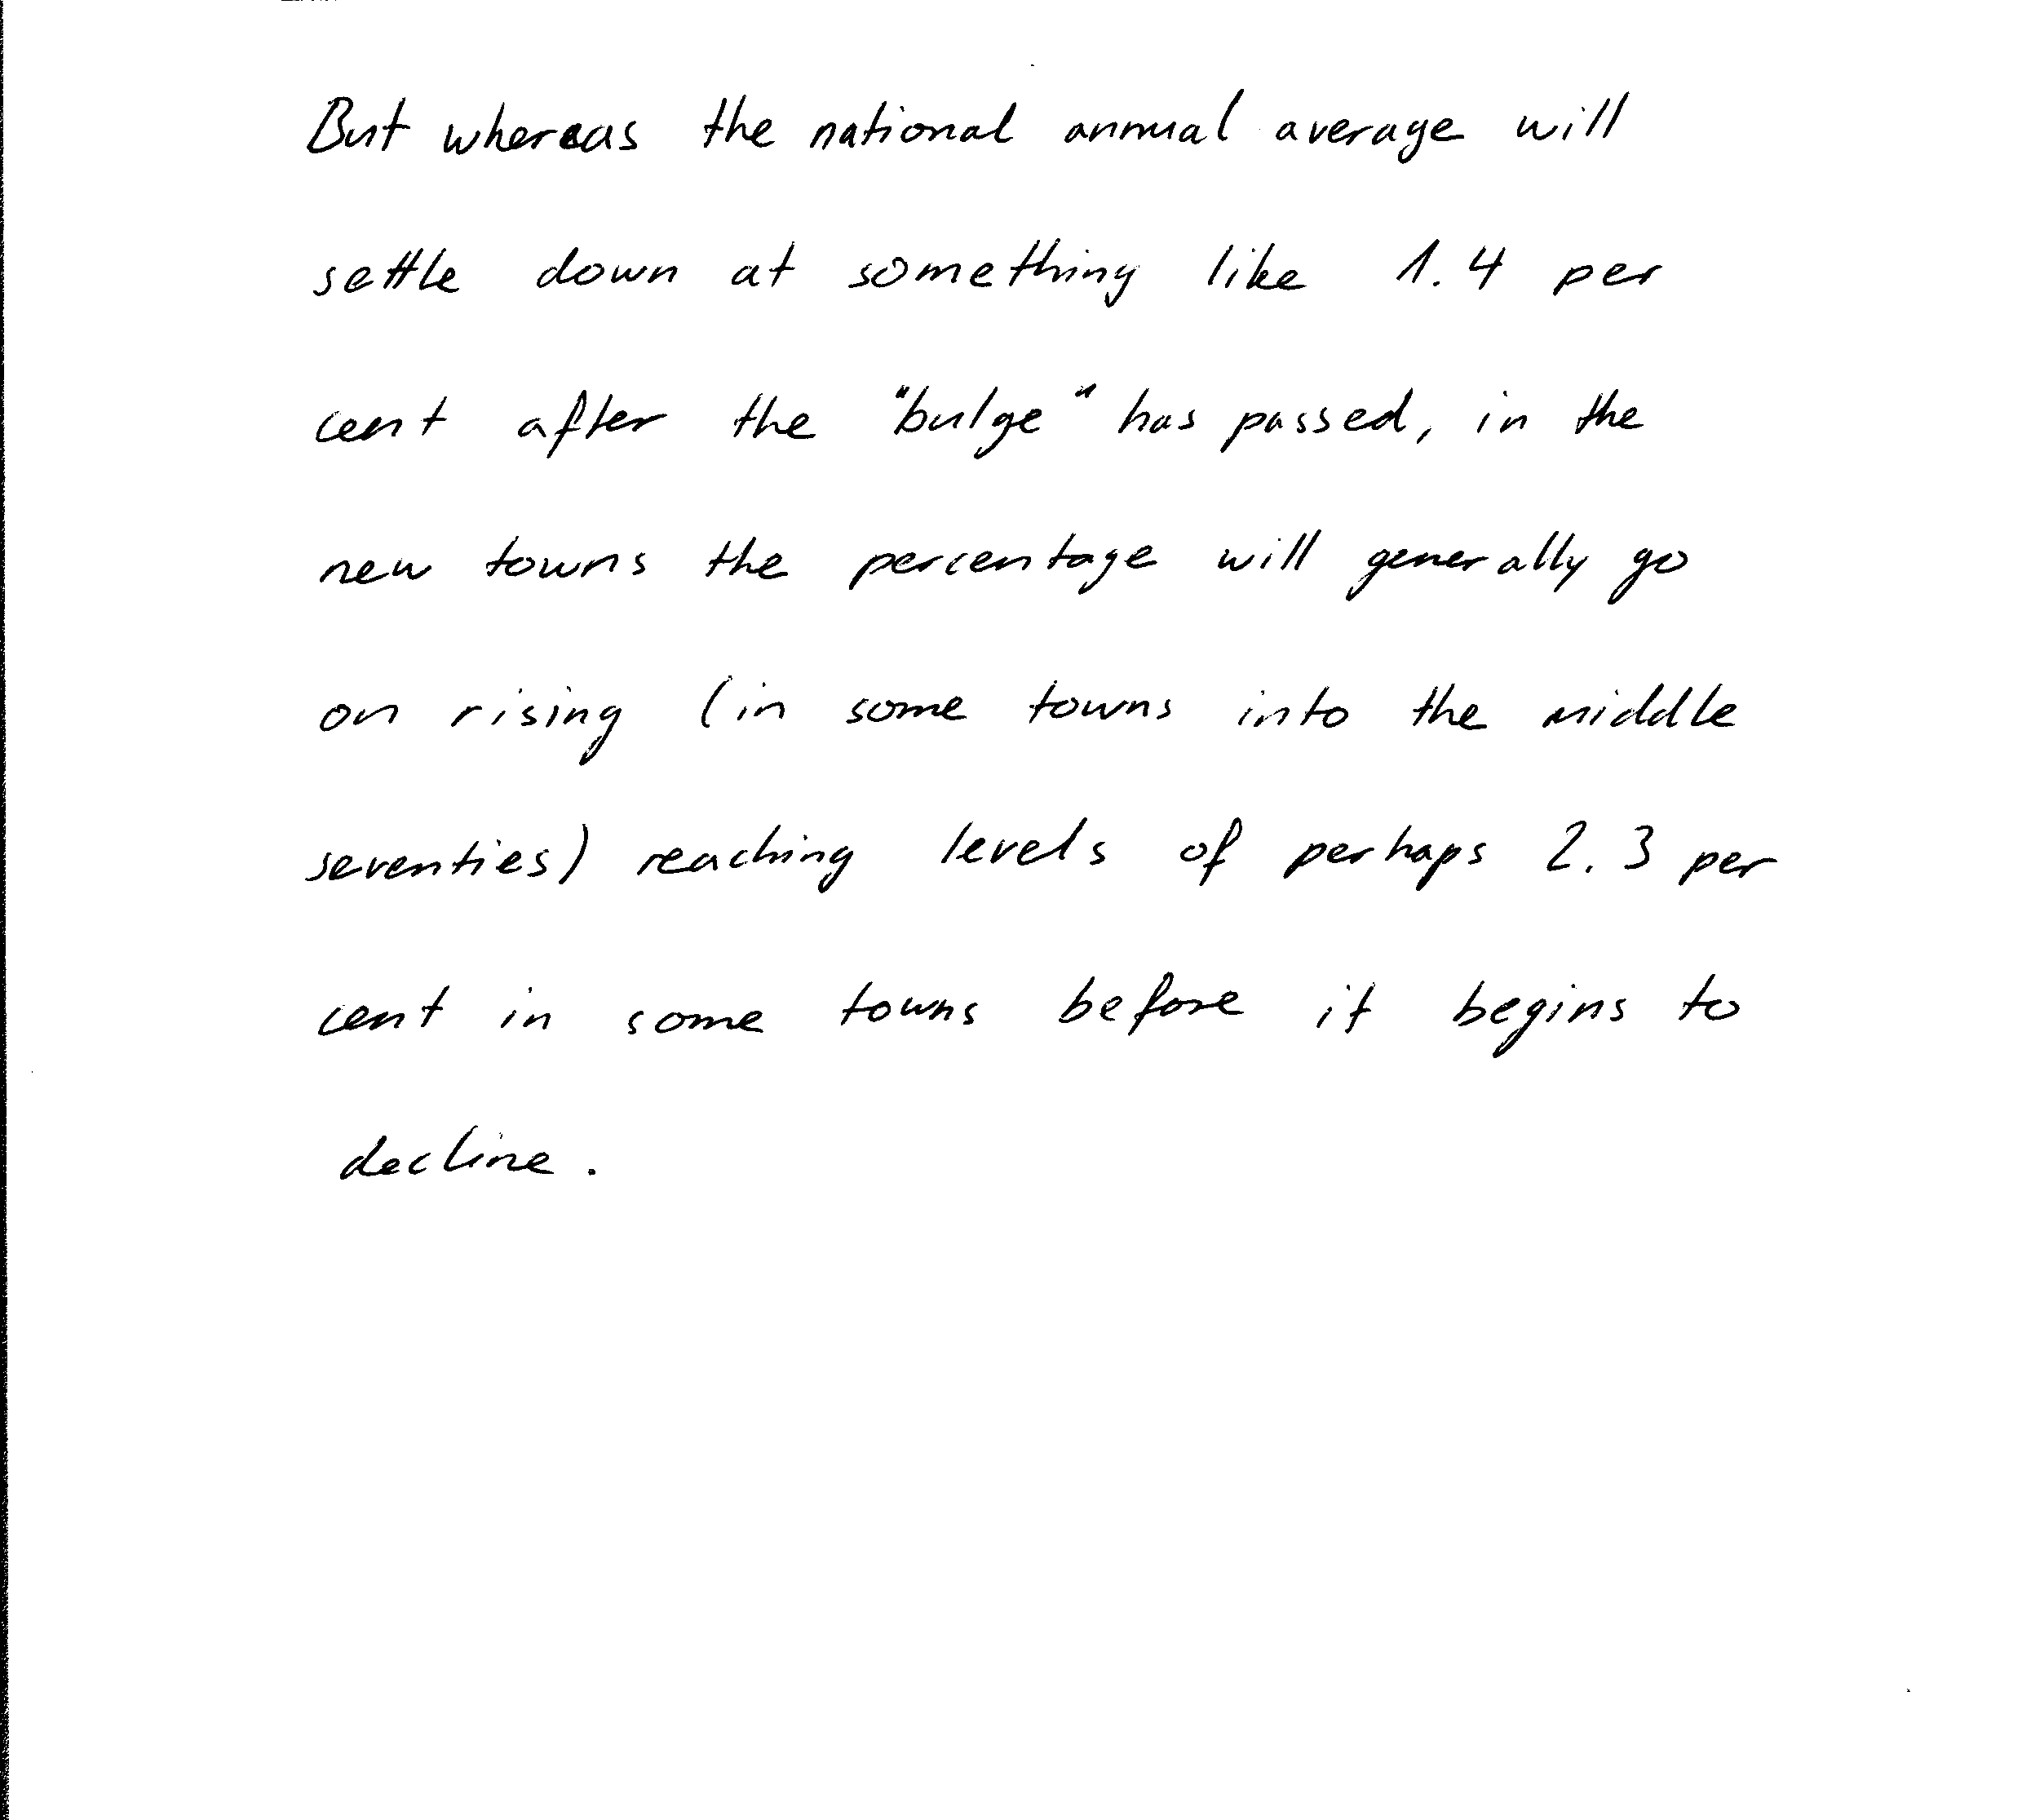 But whereas the national annual average will
settle down at something like 1.4 per
cent after the "bulge" has passed, in the
new towns the percentage will generally go
on rising (in some towns into the middle
seventies) reaching levels of perhaps 2.3 per
cent in some towns before it begins to
decline.